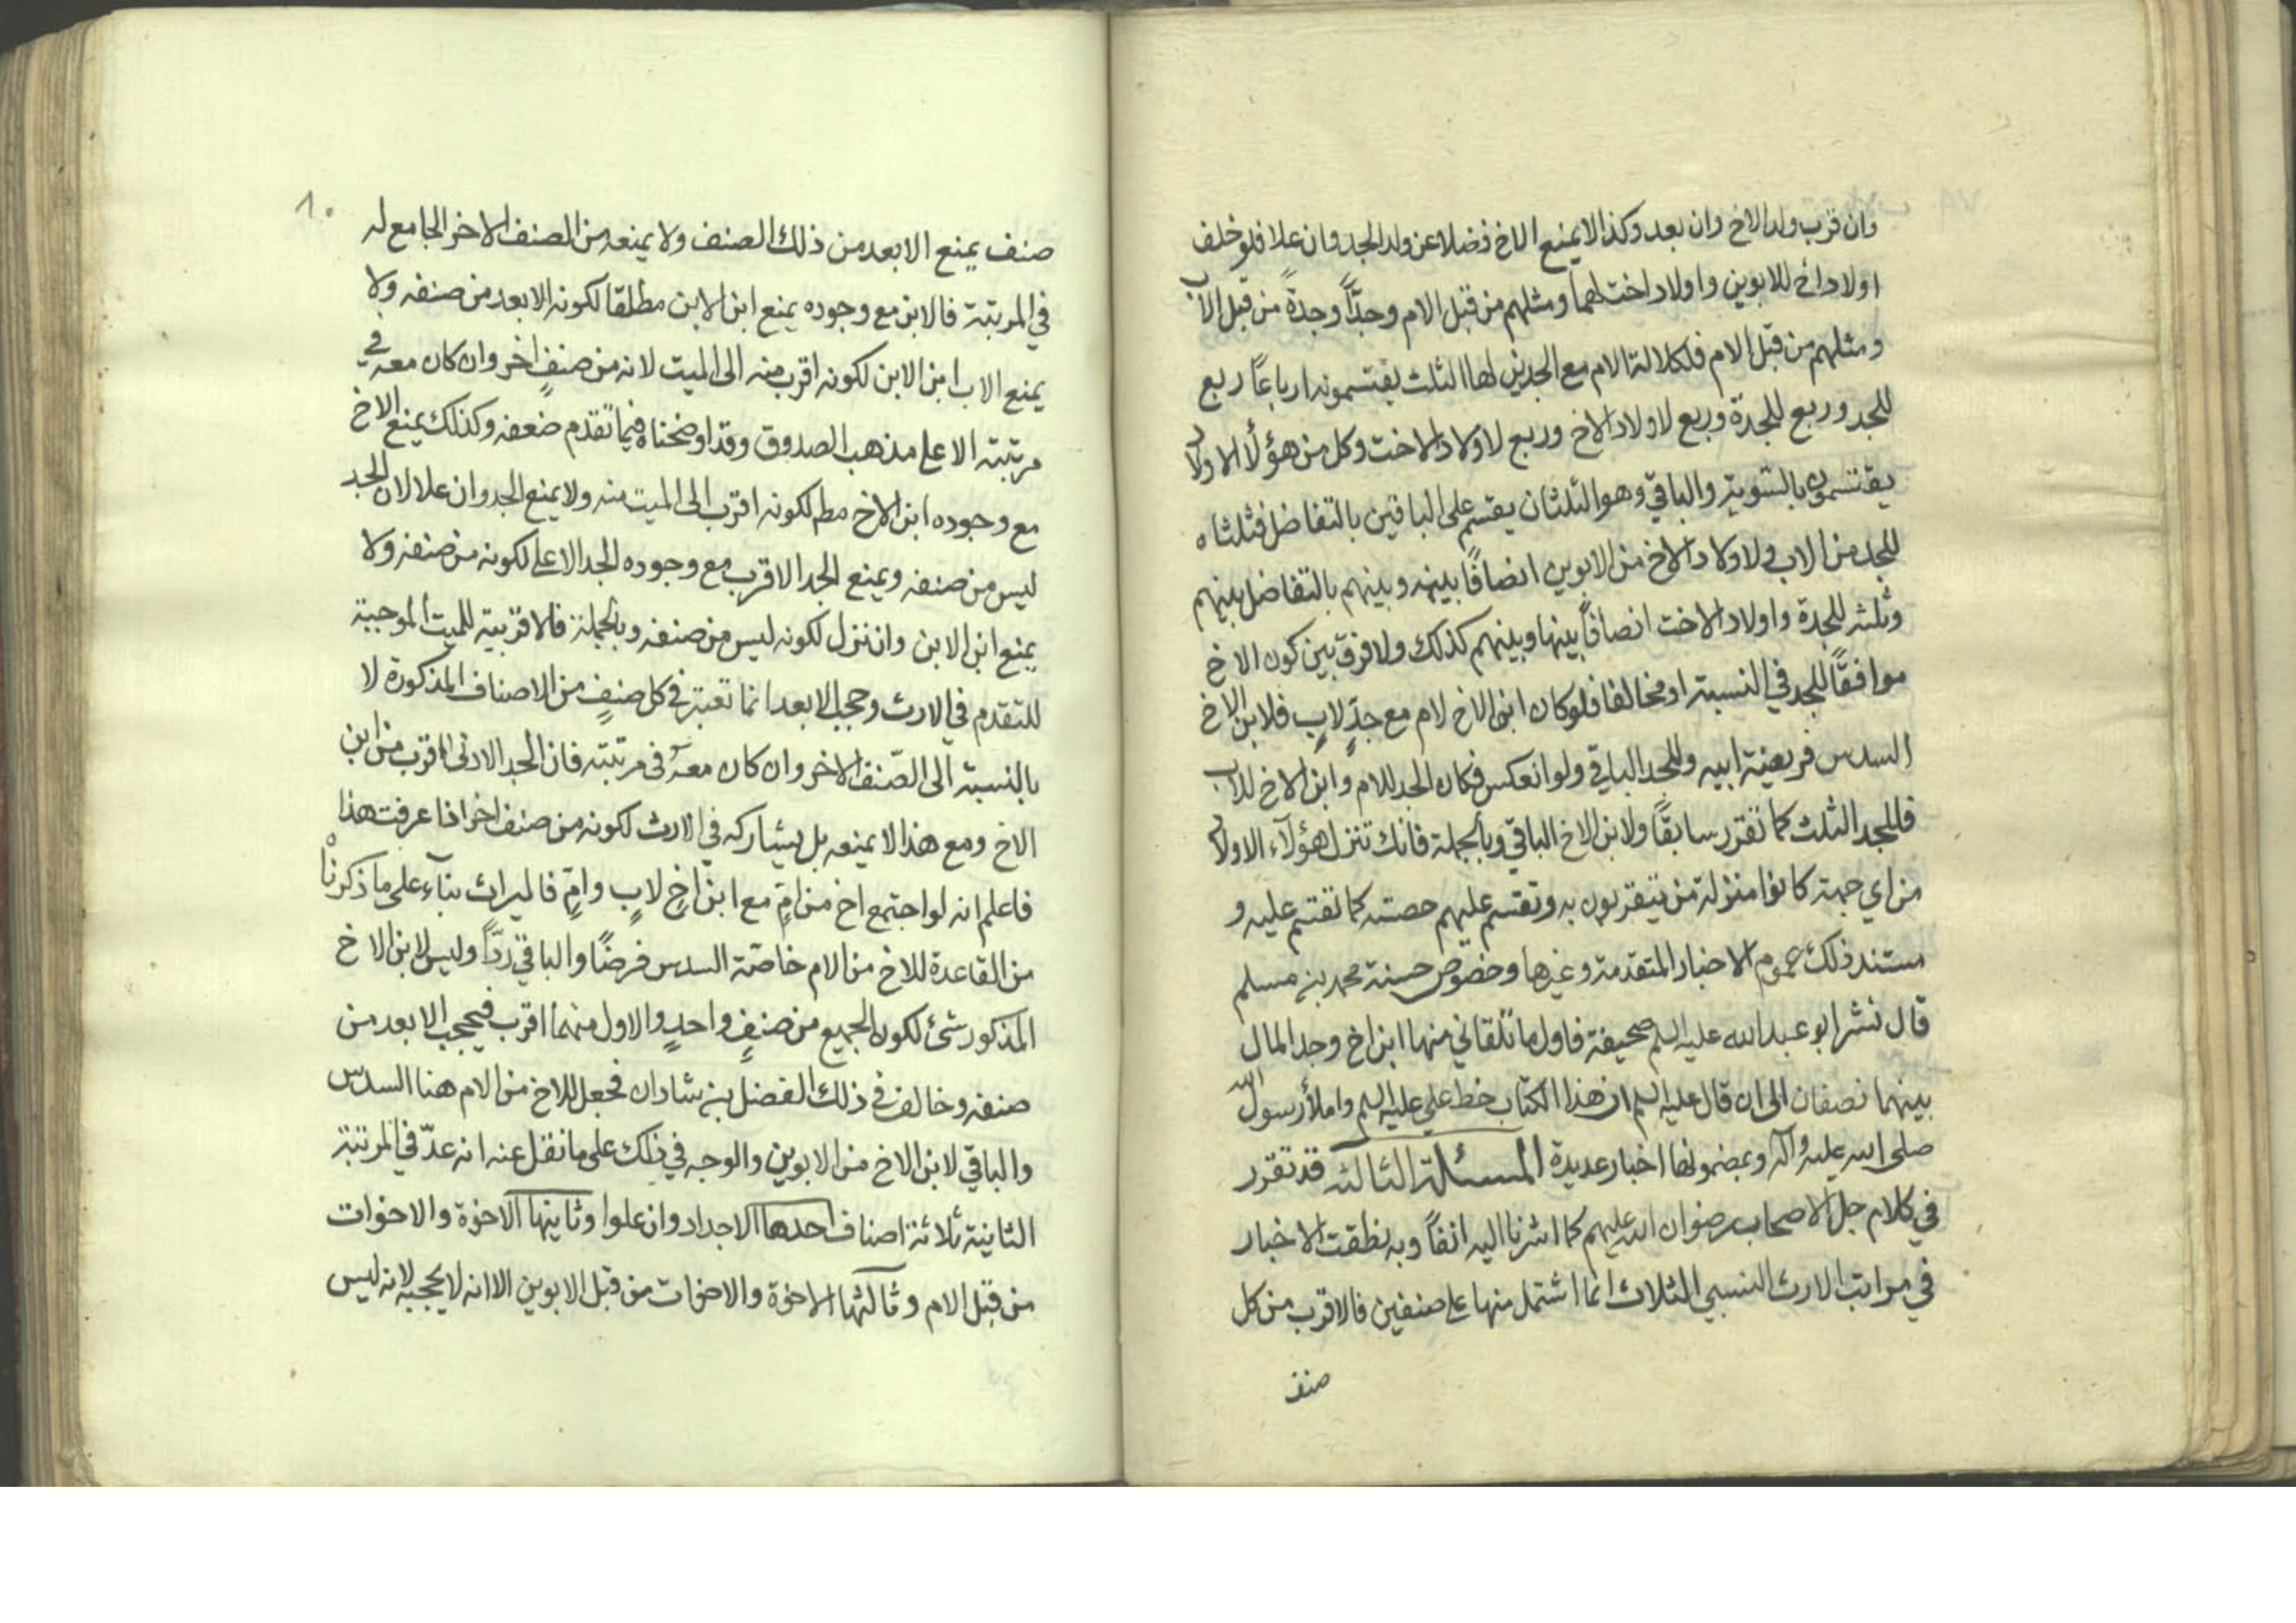 وان قرب ولد الاخ وان بعد وكذا لا يمنع الاخ فضلا عن ولد الجد وان علا فلو خلف
اولاد اخ للابوين واولاد اخت لهما ومثلهم من قبل الام وجدًّا وجدةً من قبل الاب
ومثلهم من قبل الام فلكلالة الام مع الجدين لها الثلث يقتسمونه ارباعًا ربع
للجد وربع للجدة وربع لاولاد الاخ وربع لاولاد الاخت وكل من هؤلاء الاولاد
يقتسمون بالتسوية والباقي وهو الثلثان يقسم على الباقين بالتفاضل فثلثاه
للجد من الاب ولاولاد الاخ من الابوين انصافًا بينه وبينهم بالتفاضل بينهم
وثلثه للجدة واولاد الاخت انصافًا بينها وبينهم كذلك ولا فرق بين كون الاخ
موافقًا للجد في النسبة او مخالفا فلو كان ابن الاخ لام مع جدٍّ لابٍ فلابن الاخ
السدس فريضة ابيه وللجد الباقي ولو انعكس فكان الجد للام وابن الاخ للاب
فللجد الثلث كما تقرر سابقًا ولابن الاخ الباقي وبالجملة فانك تنزل هؤلآء الاولاد
من اي جهة كانوا منزلة من يتقربون به وتقسم عليهم حصته كما تقسم عليه و
مستند ذلك عموم الاخبار المتقدمة وغيرها وخصوص حسنة محمد بن مسلم
قال نشر ابو عبد الله عليه السلم صحيفة فاول ما تلقاني منها ابن اخ وجد المال
بينهما نصفان الى ان قال عليه السلم ان هذا الكتاب خط علي عليه السلم واملأ رسول الله
صلى الله عليه وآله وبمضمونها اخبار عديدة المسئلة الثالثه قد تقرر
في كلام جل الاصحاب رضوان الله عليهم كما اشرنا اليه انفًا وبه نطقت الاخبار
في مراتب الارث النسبي الثلاث انما اشتمل منها على صنفين فالاقرب من كل
صنف
٨٠
صنف يمنع الابعد من ذلك الصنف ولا يمنعه من الصنف الاخر الجامع له
في المرتبة فالابن مع وجوده يمنع ابن الابن مطلقا لكونه الابعد من صنفه ولا
يمنع الاب ابن الابن لكونه اقرب منه الى الميت لانه من صنفٍ اخر وان كان معه في
مرتبته الا على مذهب الصدوق وقد اوضحناه فيما تقدم ضعفه وكذلك يمنع الاخ
مع وجوده ابن الاخ مطم لكونه اقرب الى الميت منه ولا يمنع الجد وان علا لان الجد
ليس من صنفه ويمنع الجد الاقرب مع وجوده الجد الاعلى لكونه من صنفه ولا
يمنع ابن الابن وان نزل لكونه ليس من صنفه وبالجملة فالاقربية للميت الموجبة
للتقدم في الارث وحجب الابعد انما تعتبر في كل صنفٍ من الاصناف المذكورة لا
بالنسبة الى الصّنف الاخر وان كان معه في مرتبته فان الجد الادنى اقرب من ابن
الاخ ومع هذا لا يمنعه بل يشاركه في الارث لكونه من صنف اخر اذا عرفت هذا
فاعلم انه لو اجتمع اخ من امٍّ مع ابن اخٍ لابٍ وامٍّ فالميراث بنآء على ما ذكرناه
من القاعدة للاخ من الام خاصّة السدس فرضًا والباقي ردًّا وليس لابن الاخ
المذكور شئ لكون الجميع من صنفٍ واحدٍ والاول منهما اقرب فيحجب الابعد من
صنفه وخالف في ذلك الفضل بن شاذان فجعل للاخ من الام هنا السدس
والباقي لابن الاخ من الابوين والوجه في ذلك على ما نقل عنه انه عدّ في المرتبة
الثانية ثلاثة اصناف احدها الاجداد وان علوا وثانيها الاخوة والاخوات
من قبل الام وثالثها الاخوة والاخوات من قبل الابوين الا انه لا يحجبه لانه ليس